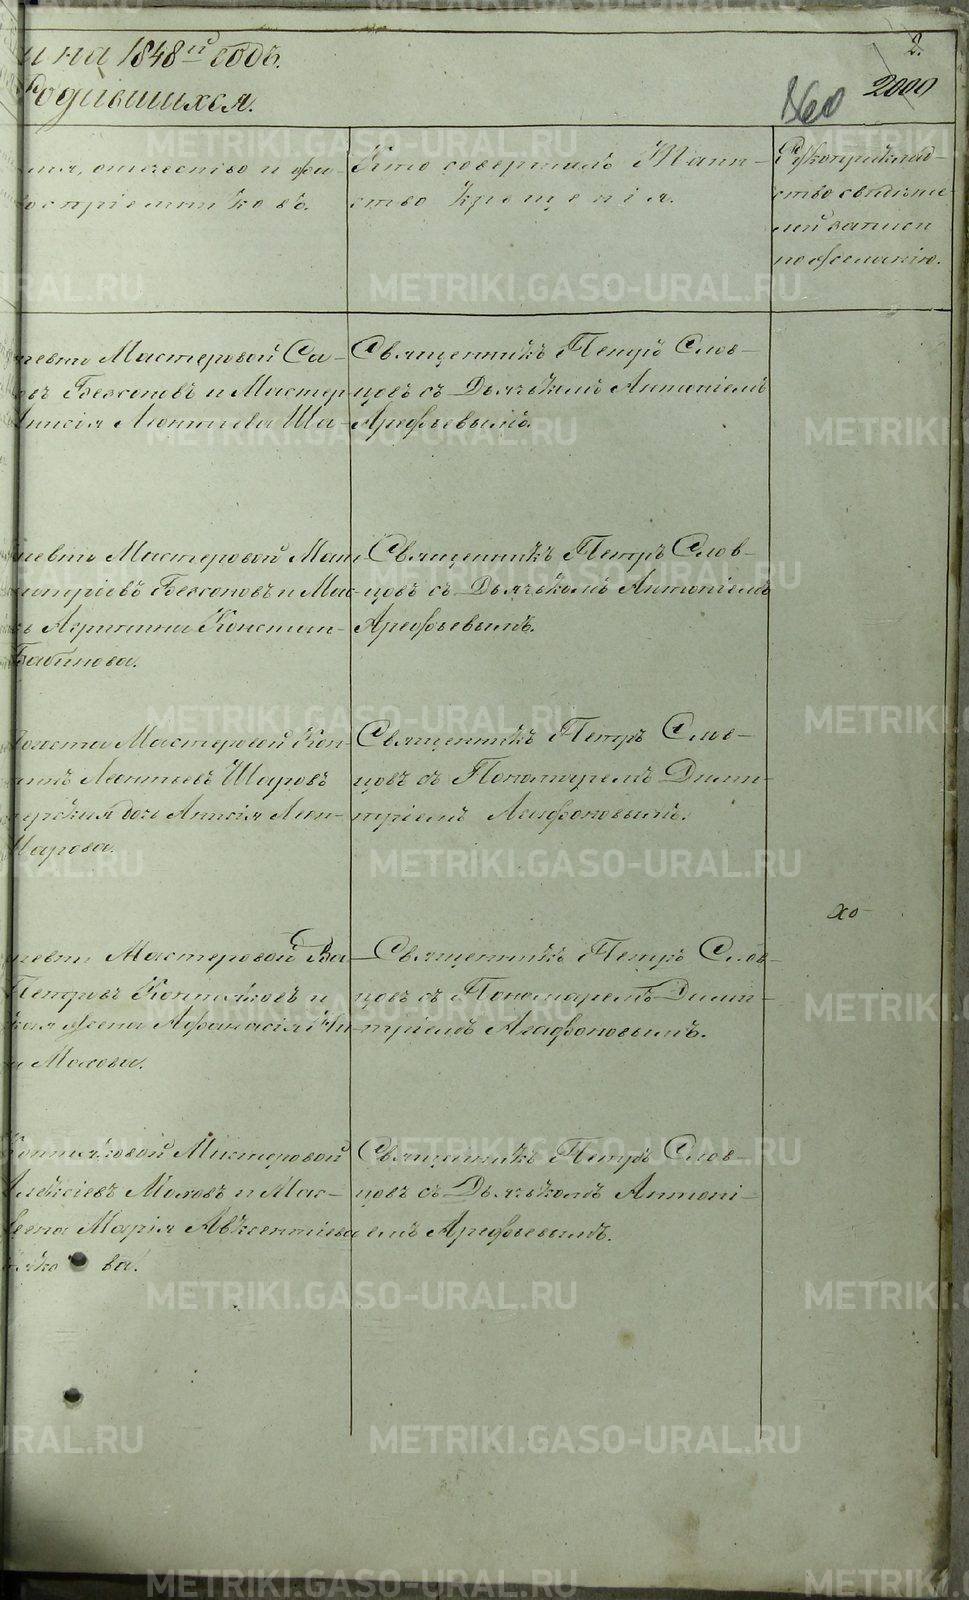 и на 1848й годъ.
Родившихся.
2.
2000
860
имя, отчество и фа-
воспріемниковъ.
Кто совершалъ Таин-
ство Крещенія.
Рукоприклад-
ство свидѣте-
лей записи
по желанію.
Мастеровой Са-
Бексоновъ и Мастер
Анисія Леонтьева Ша-
Священникъ Петръ Слов-
цовъ съ Дьячкомъ Антоніемъ
Арефьевымъ.
Мастеровой Мат
митріевъ Бексоновъ и Мас-
Акулина Констан-
Бабинова.
Священникъ Петръ Слов-
цовъ съ Дьячкомъ Антоніемъ
Арефьевымъ.
Мастеровой Кон-
Леонтьевъ Шаровъ
дочь Анисія Леон-
Шарова.
Священникъ Петръ Слов-
цовъ съ Пономаремъ Дими-
тріемъ Агафоновымъ.
Мастеровой Ва-
Петровъ Коптяковъ и
жена Афанасія
Махова.
Священникъ Петръ Слов-
цовъ съ Пономаремъ Дими-
тріемъ Агафоновымъ.
хо
Коптяковой Мастеровой
Алексіевъ Маховъ и Мас-
жена Марія Авксентіева
ва.
Священникъ Петръ Слов-
цовъ съ Дьячкомъ Антоні-
емъ Арефьевымъ.
METRIKI.GASO-URAL.RU